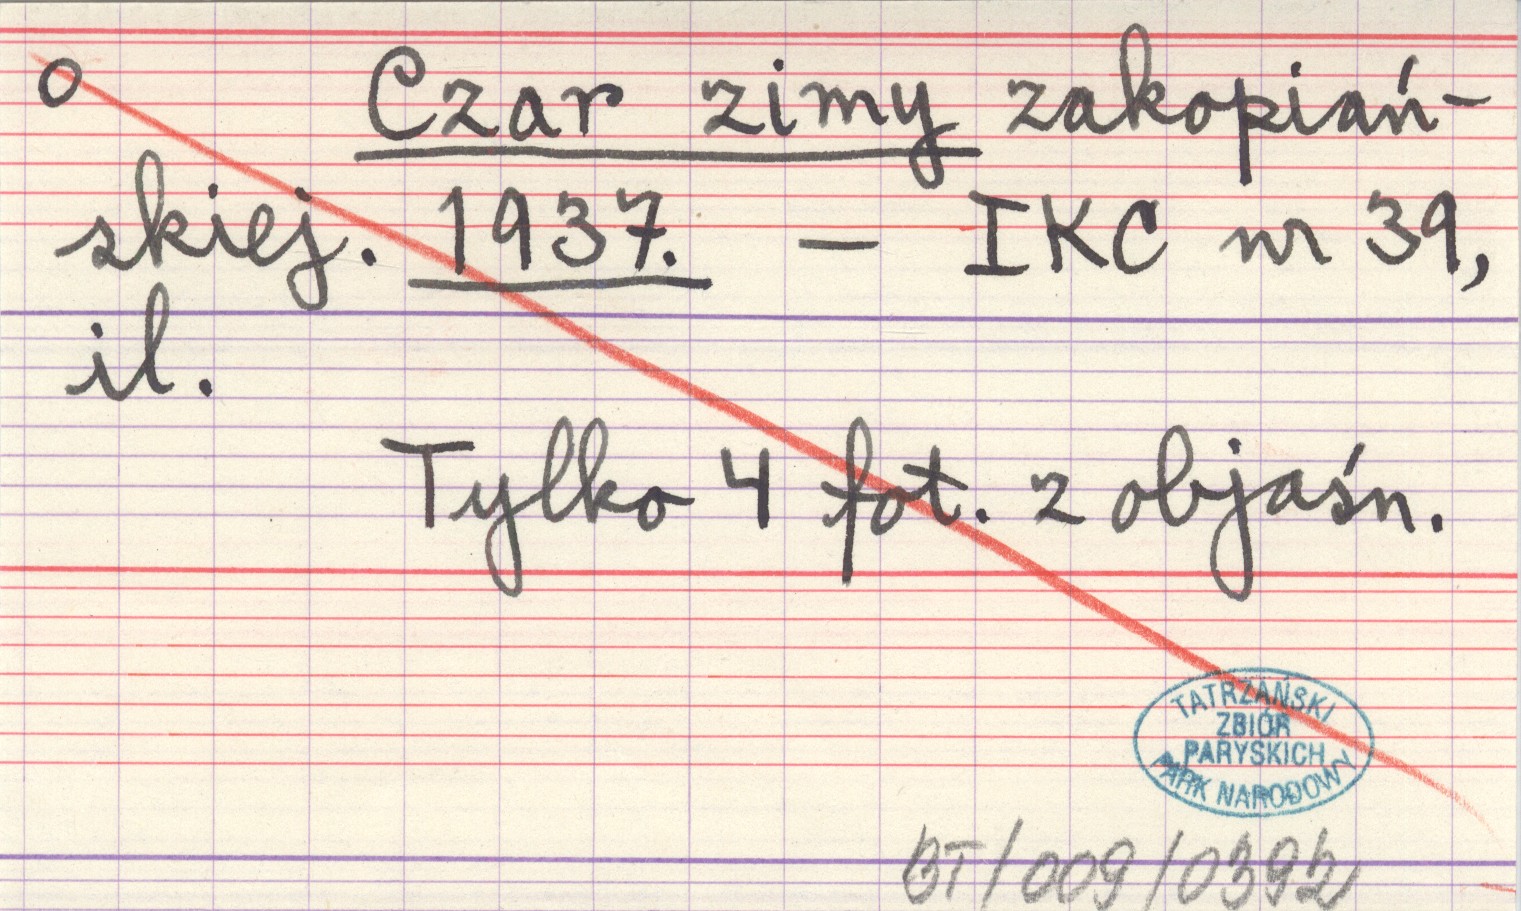 o Czar zimy zakopiań-
skiej. 1937. — IKC nr 39,
il.
Tylko 4 fot. z objaśn.
TATRZAŃSKI
ZBIÓR
PARYSKICH
PARK NARODOWY
BT/009/0392